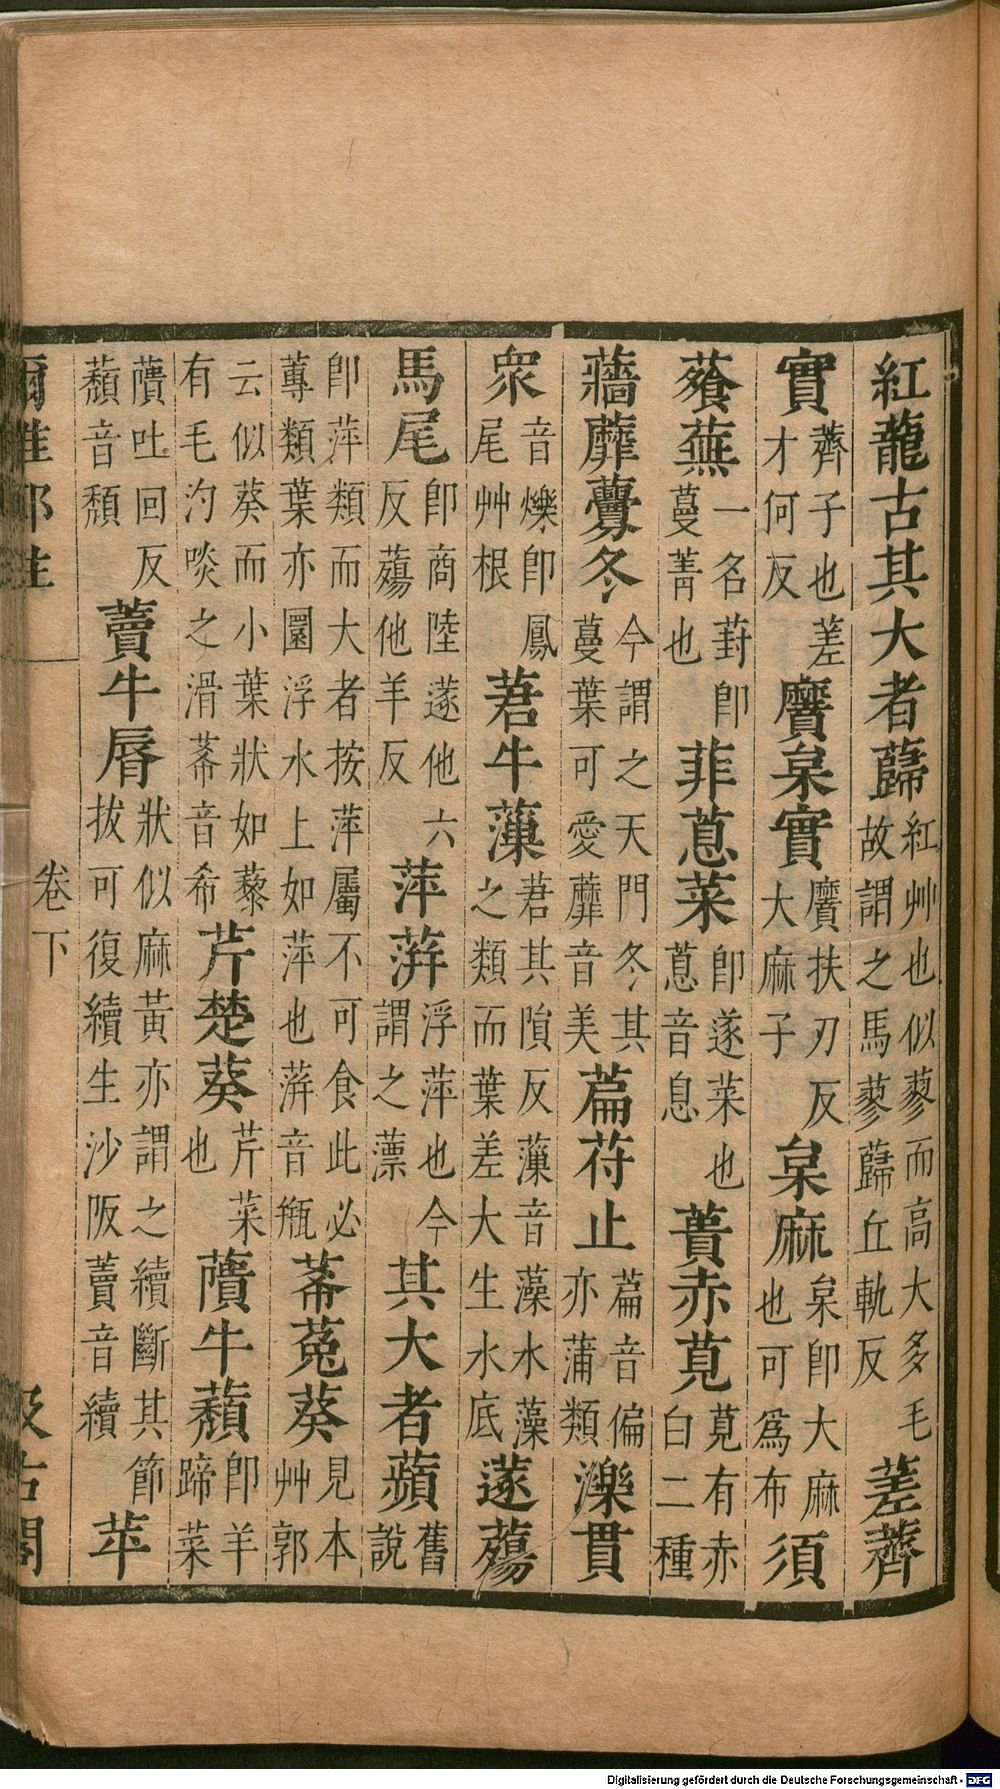 紅龍古其大者蘬紅艸也似蓼而高大多毛故謂之馬蓼蘬丘軌反蒫薺
實薺子也差才何反黂枲實黂扶刃反大麻子枲麻枲即大麻也可爲布須
薞蕪一名葑即蔓菁也菲蒠菜即蓫菜也蒠音息蕢赤莧莧有赤白二種
蘠蘼虋冬今謂之天門冬其蔓葉可愛蘼音美萹苻止萹音偏亦蒲類濼貫
衆音爍即鳳尾艸根莙牛薻莙其隕反薻音藻水藻之類而葉差大生水底蓫薚
馬尾即商陸蓫他六反薚他羊反萍蓱浮萍也今謂之薸其大者蘋舊說
即萍類而大者按萍屬不可食此必蓴類葉亦圜浮水上如萍也蓱音缾莃菟葵見本艸郭
云似葵而小葉狀如藜有毛汋啖之滑莃音希芹楚葵芹菜也藬牛蘈即羊蹄菜
藬吐回反蘈音頹藚牛脣狀似麻黃亦謂之續斷其節拔可復續生沙阪藚音續苹
爾雅鄭注
卷下
汲古閣
Digitalisierung gefördert durch die Deutsche Forschungsgemeinschaft - DFG